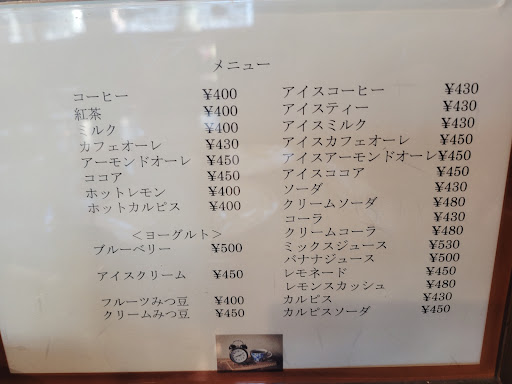 メニュー
コーヒー ¥400
紅茶 ¥400
ミルク ¥400
カフェオーレ ¥430
アーモンドオーレ ¥450
ココア ¥450
ホットレモン ¥400
ホットカルピス ¥400
＜ヨーグルト＞
ブルーベリー ¥500
アイスクリーム ¥450
フルーツみつ豆 ¥400
クリームみつ豆 ¥450
アイスコーヒー ¥430
アイスティー ¥430
アイスミルク ¥430
アイスカフェオーレ ¥450
アイスアーモンドオーレ¥450
アイスココア ¥450
ソーダ ¥430
クリームソーダ ¥480
コーラ ¥430
クリームコーラ ¥480
ミックスジュース ¥530
バナナジュース ¥500
レモネード ¥450
レモンスカッシュ ¥480
カルピス ¥430
カルピスソーダ ¥450